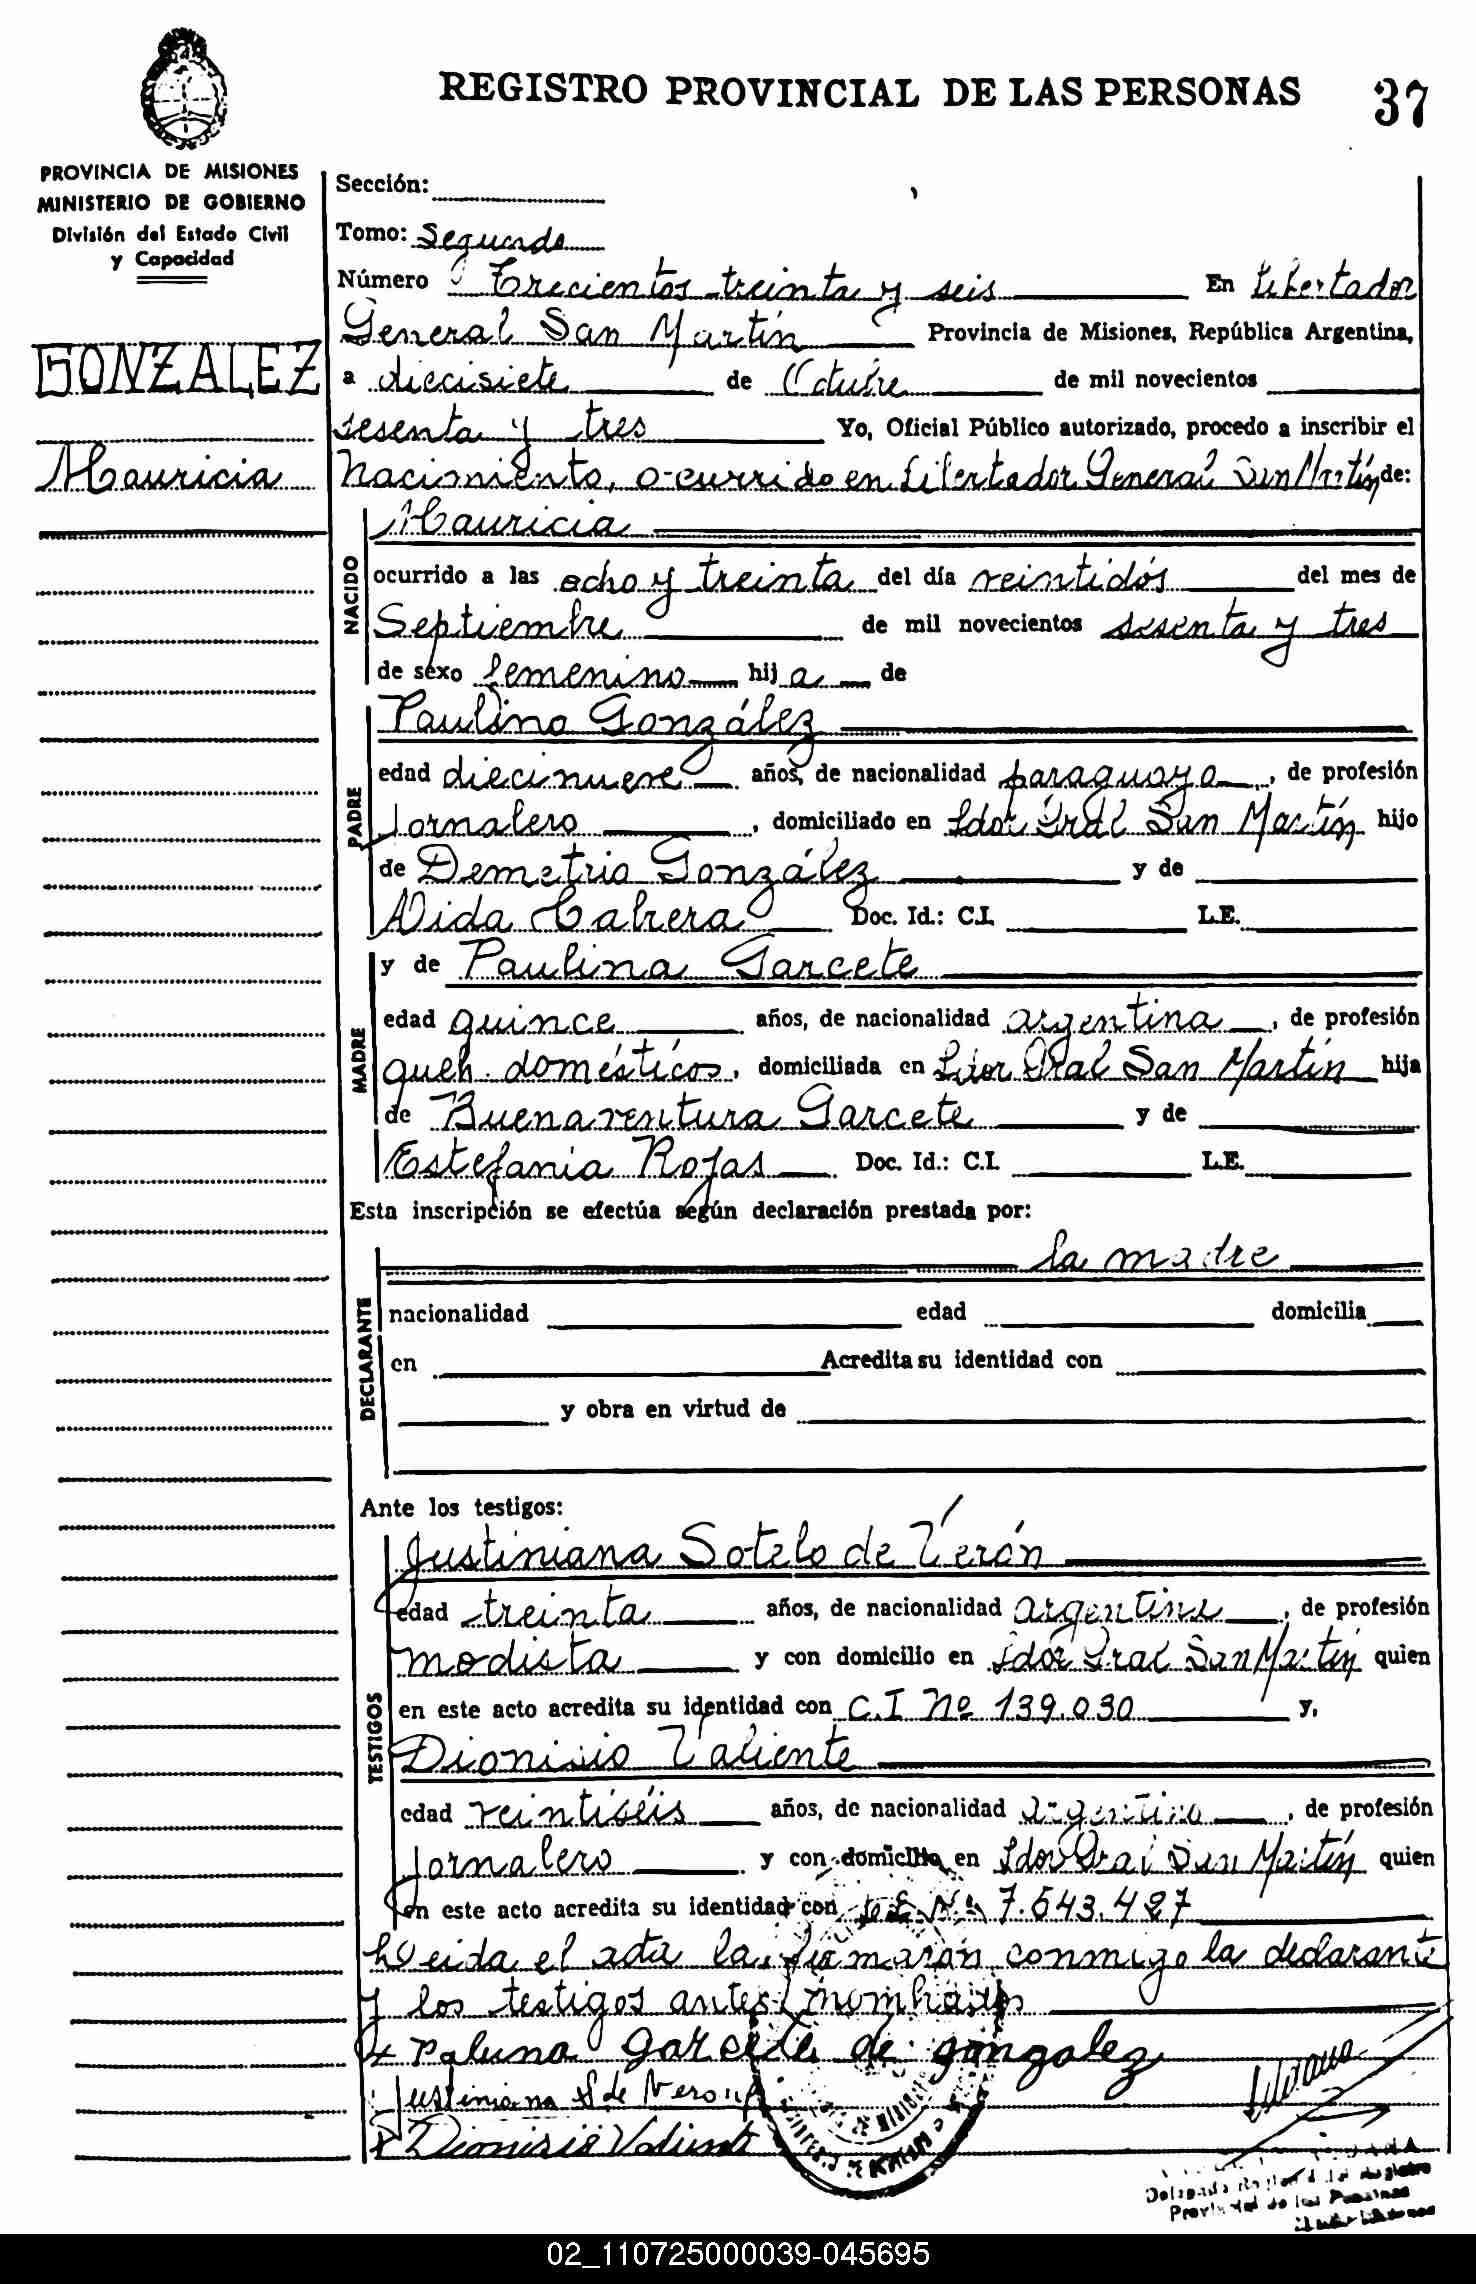 REGISTRO PROVINCIAL DE LAS PERSONAS 37
PROVINCIA DE MISIONES
MINISTERIO DE GOBIERNO
División del Estado Civil
y Capacidad
GONZALEZ
Mauricia
Sección:
Tomo: Segundo
Número Trecientos treinta y seis En Libertador
General San Martín Provincia de Misiones, República Argentina,
a diecisiete de Octubre de mil novecientos
sesenta y tres Yo, Oficial Público autorizado, procedo a inscribir el
nacimiento, ocurrido en Libertador General San Martín de:
NACIDO
Mauricia
ocurrido a las ocho y treinta del día veintidós del mes de
Septiembre de mil novecientos sesenta y tres
de sexo femenino hija de
PADRE
Paulino González
edad diecinueve años, de nacionalidad paraguaya, de profesión
Jornalero, domiciliado en Ldor Gral San Martín hijo
de Demetrio González y de
Aida Cabrera Doc. Id.: C.I. L.E.
MADRE
y de Paulina Garcete
edad quince años, de nacionalidad argentina, de profesión
queh. domésticos, domiciliada en Ldor Gral San Martín hija
de Buenaventura Garcete y de
Estefania Rojas Doc. Id.: C.I. L.E.
Esta inscripción se efectúa según declaración prestada por:
DECLARANTE
la madre
nacionalidad edad domicilia
en Acredita su identidad con
y obra en virtud de
Ante los testigos:
TESTIGOS
Justiniana Sotelo de Verón
edad treinta años, de nacionalidad argentina, de profesión
modista y con domicilio en Ldor Gral San Martín quien
en este acto acredita su identidad con C.I Nº 139.030 y,
Dionisio Valiente
edad veintiséis años, de nacionalidad argentina, de profesión
Jornalero y con domicilio en Ldor Gral San Martín quien
en este acto acredita su identidad con L.E. Nº 7.543.427
Leida el acta la firmarán conmigo la declarante
y los testigos antes nombrados
Paluna Garcete de gonzalez
Justiniana S de Veron
Dionisio Valiente
Delegada del Registro
Provincial de las Personas
02_110725000039-045695